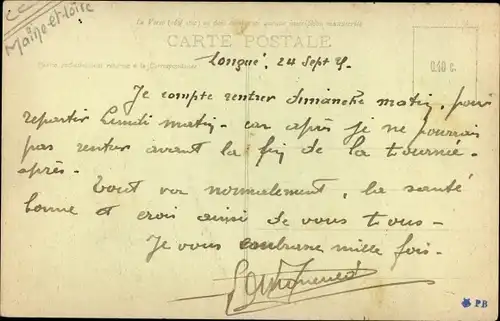 Maine-et-Loire
CARTE POSTALE
Longué, 24 Sept
0.10 c.
Je compte rentrer dimanche matin, pour
repartir Lundi matin - car après je ne pourrai
pas rentrer avant la fin de la tournée -
après -
Tout va normalement, la santé
bonne et crois ainsi de vous tous -
Je vous embrasse mille fois -
PB